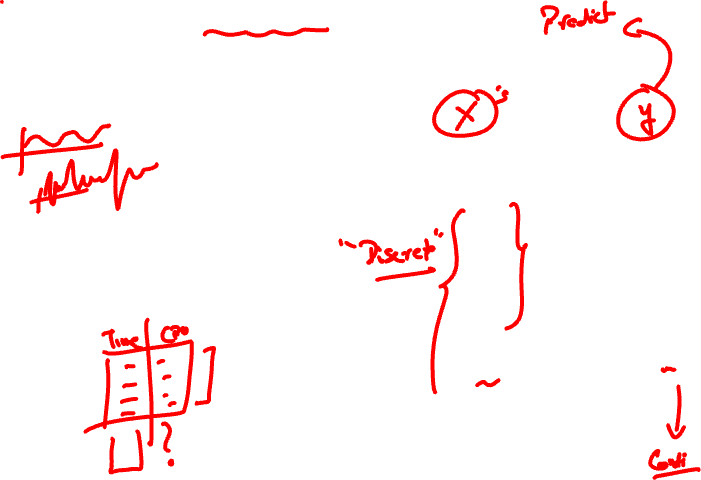 Predict
X
y
"Discrete"
Time CPU
?
Conti